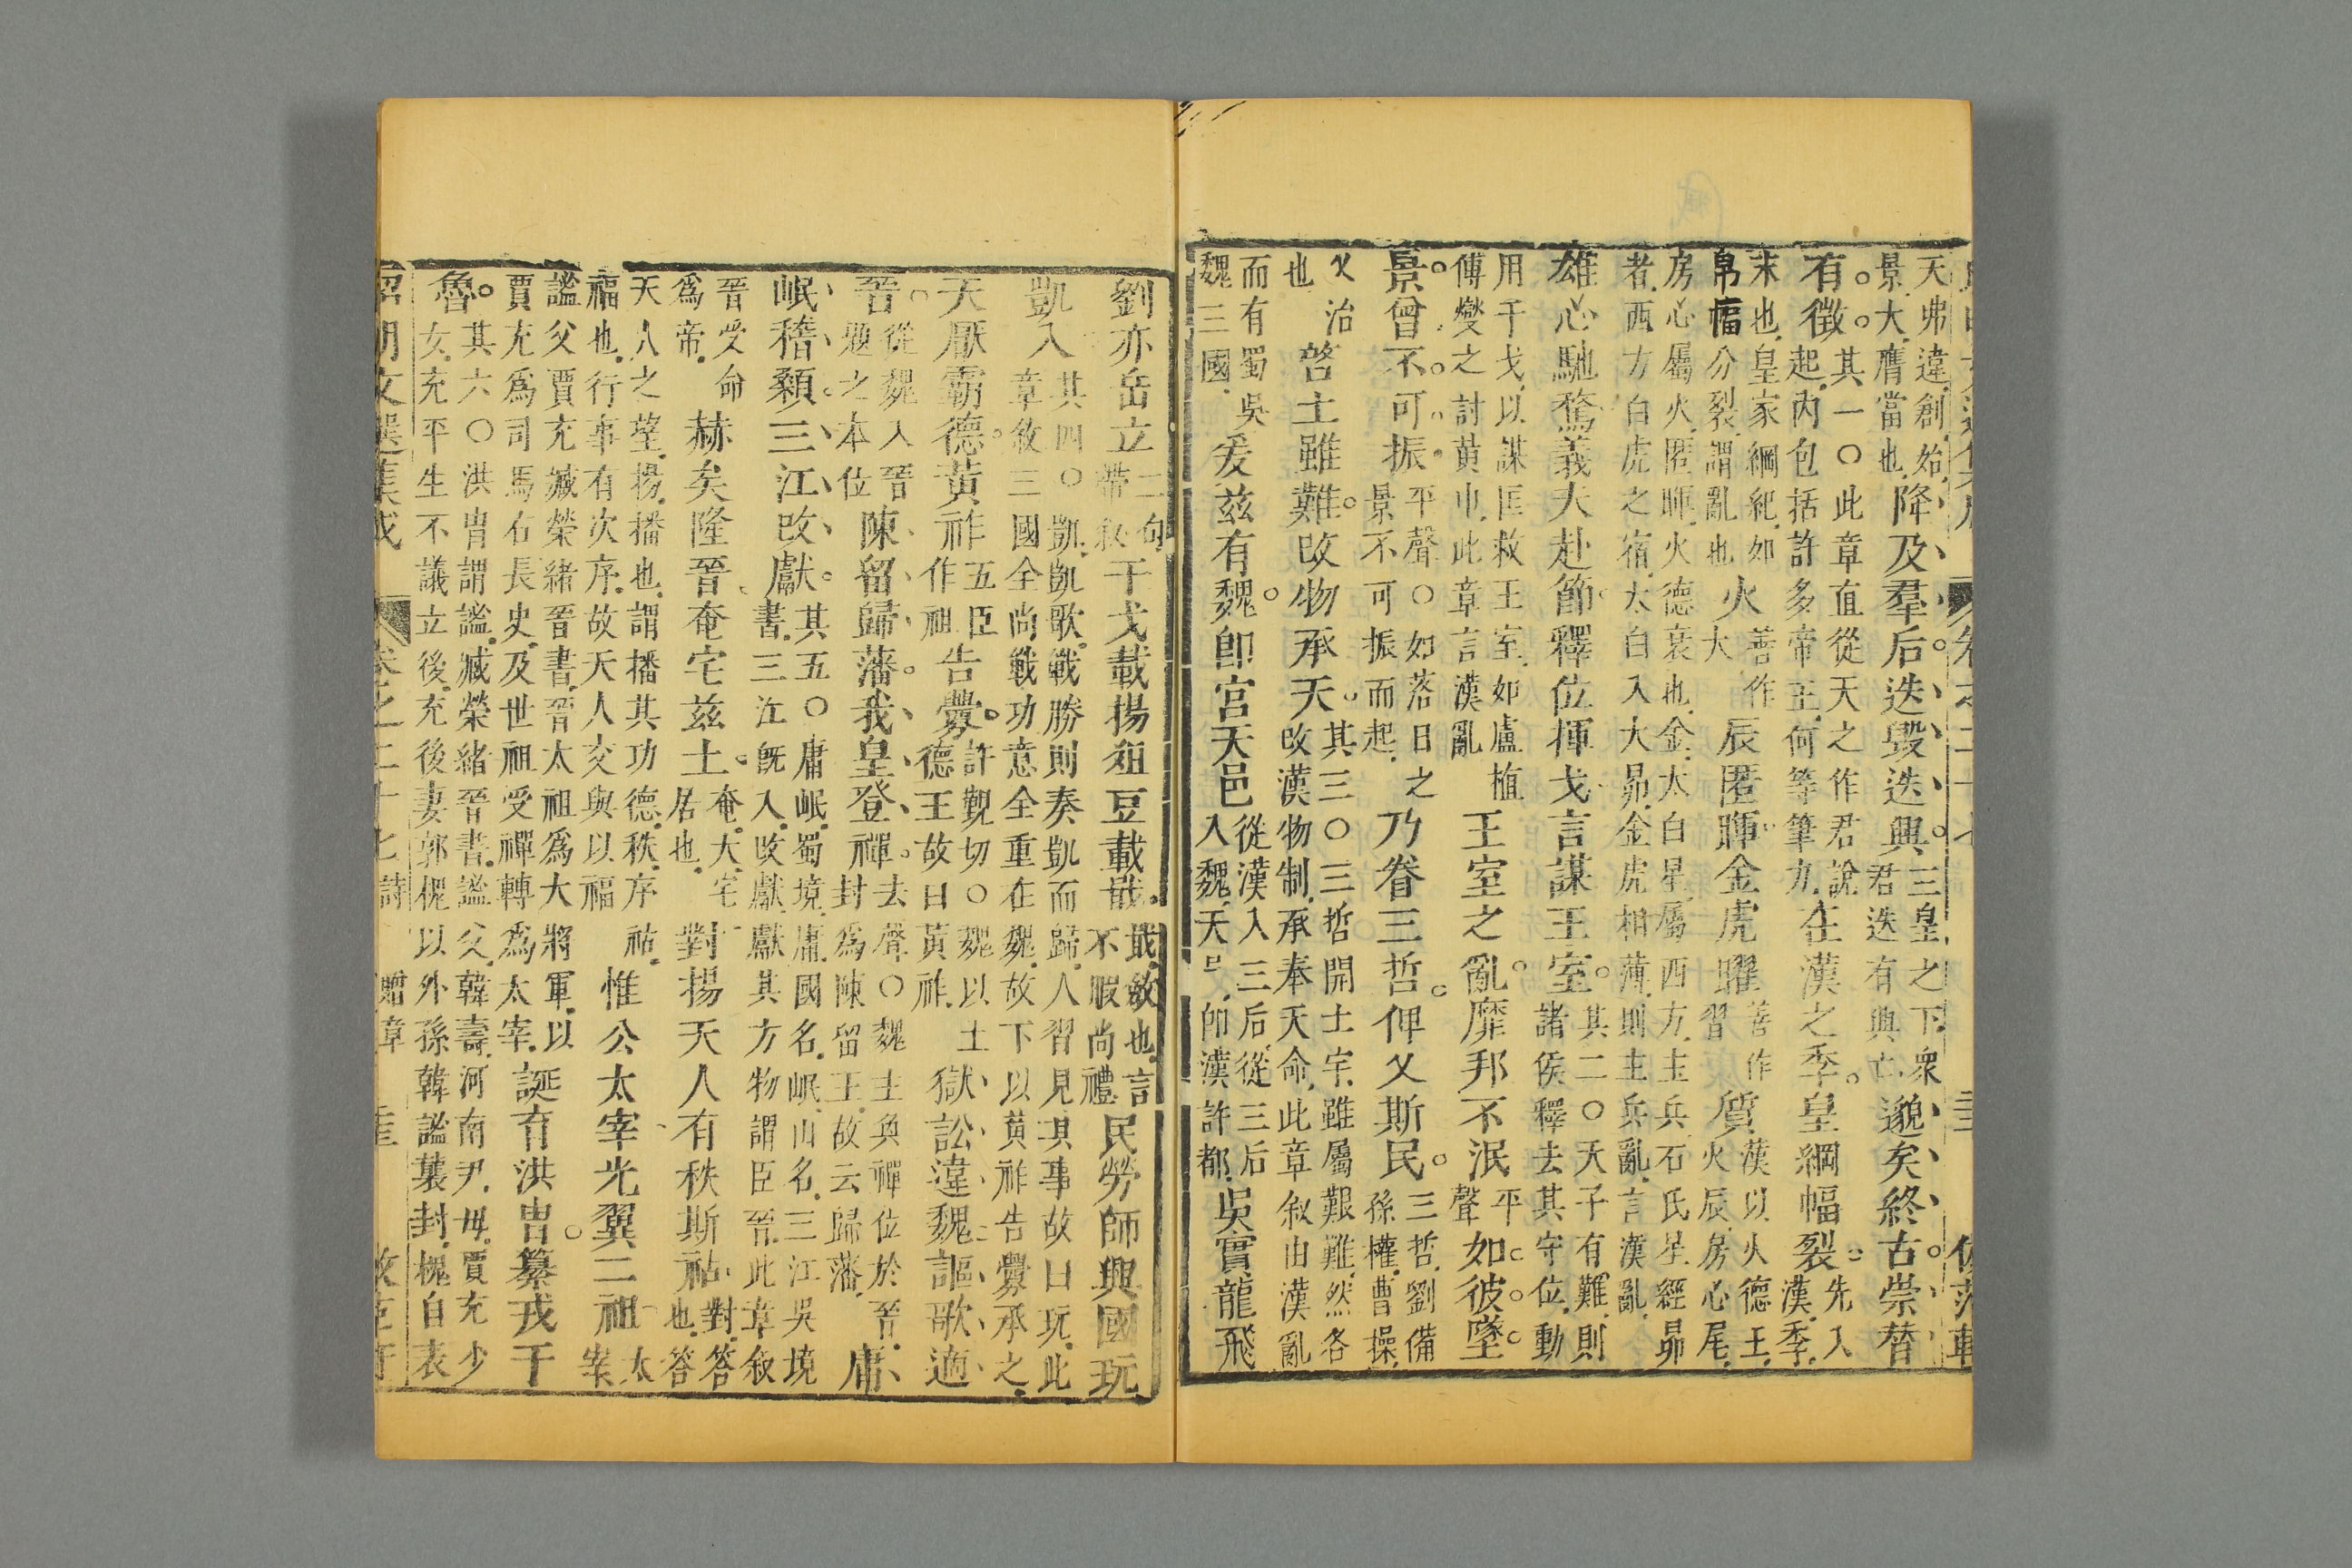 天弗違創始
景大膺當也
降及羣后迭毀迭興
三皇之下衆
君迭有興亡
邈矣終古崇替
有徵
其一○此章直從天之作君說
起內包括許多帝王何等筆力
在漢之季皇綱幅裂
先入
漢季
末也皇家綱紀如
帛幅分裂謂亂也
火
善作
大
辰匿暉金虎曜
善作
習
質
漢以火德王
火辰房心尾
房心屬火匿暉火德衰也金太白星屬西方主兵石氏星經昴
者西方白虎之宿太白入大昴金虎相薄則主兵亂言漢亂
雄心馳騖義夫赴節釋位揮戈言謀王室
其二○天子有難則
諸侯釋去其守位動
用干戈以謀匡救王室如盧植
傅燮之討黃巾此章言漢亂
王室之亂靡邦不泯
平
聲
如彼墜
景曾不可振
平聲○如落日之
景不可振而起
乃眷三哲俾乂斯民
三哲劉備
孫權曹操
乂治
也
啓土雖難改物承天
其三○三哲開土宇雖屬艱難然各
改漢物制承奉天命此章叙由漢亂
而有蜀吳
魏三國
爰茲有魏卽宮天邑
從漢入三后從三后
入魏天邑卽漢許都
吳實龍飛
劉亦岳立
二句
帶叙
干戈載揚俎豆載戢
戢斂也言
不暇尚禮
民勞師興國玩
凱入
其四○凱凱歌戰勝則奏凱而歸人習見其事故曰玩此
章敘三國全尚戰功意全重在魏故下以黃祚告釁承之
天厭霸德黃祚
五臣
作祖
告釁
許覲切○魏以土
德王故曰黃祚
獄訟違魏謳歌適
晉
從魏入晉
題之本位
陳留歸藩我皇登禪
去聲○魏主奐禪位於晉
封爲陳留王故云歸藩
庸
岷稽顙三江改獻
其五○庸岷蜀境庸國名岷山名三江吳境
書三江旣入改獻獻其方物謂臣晉此章叙
晉受命
爲帝
赫矣隆晉奄宅茲土
奄大宅
居也
對揚天人有秩斯祜
對答
也答
天人之望揚播也謂播其功德秩序祜
福也行事有次序故天人交與以福
惟公太宰光翼二祖
太
宰
謐父賈充臧榮緒晉書晉太祖爲大將軍以
賈充爲司馬右長史及世祖受禪轉爲太宰
誕育洪冑纂戎于
魯
其六○洪冑謂謐臧榮緒晉書謐父韓壽河南尹母賈充少
女充平生不議立後充後妻郭槐以外孫韓謐襲封槐自表
昭明文選集成 卷之二十七詩